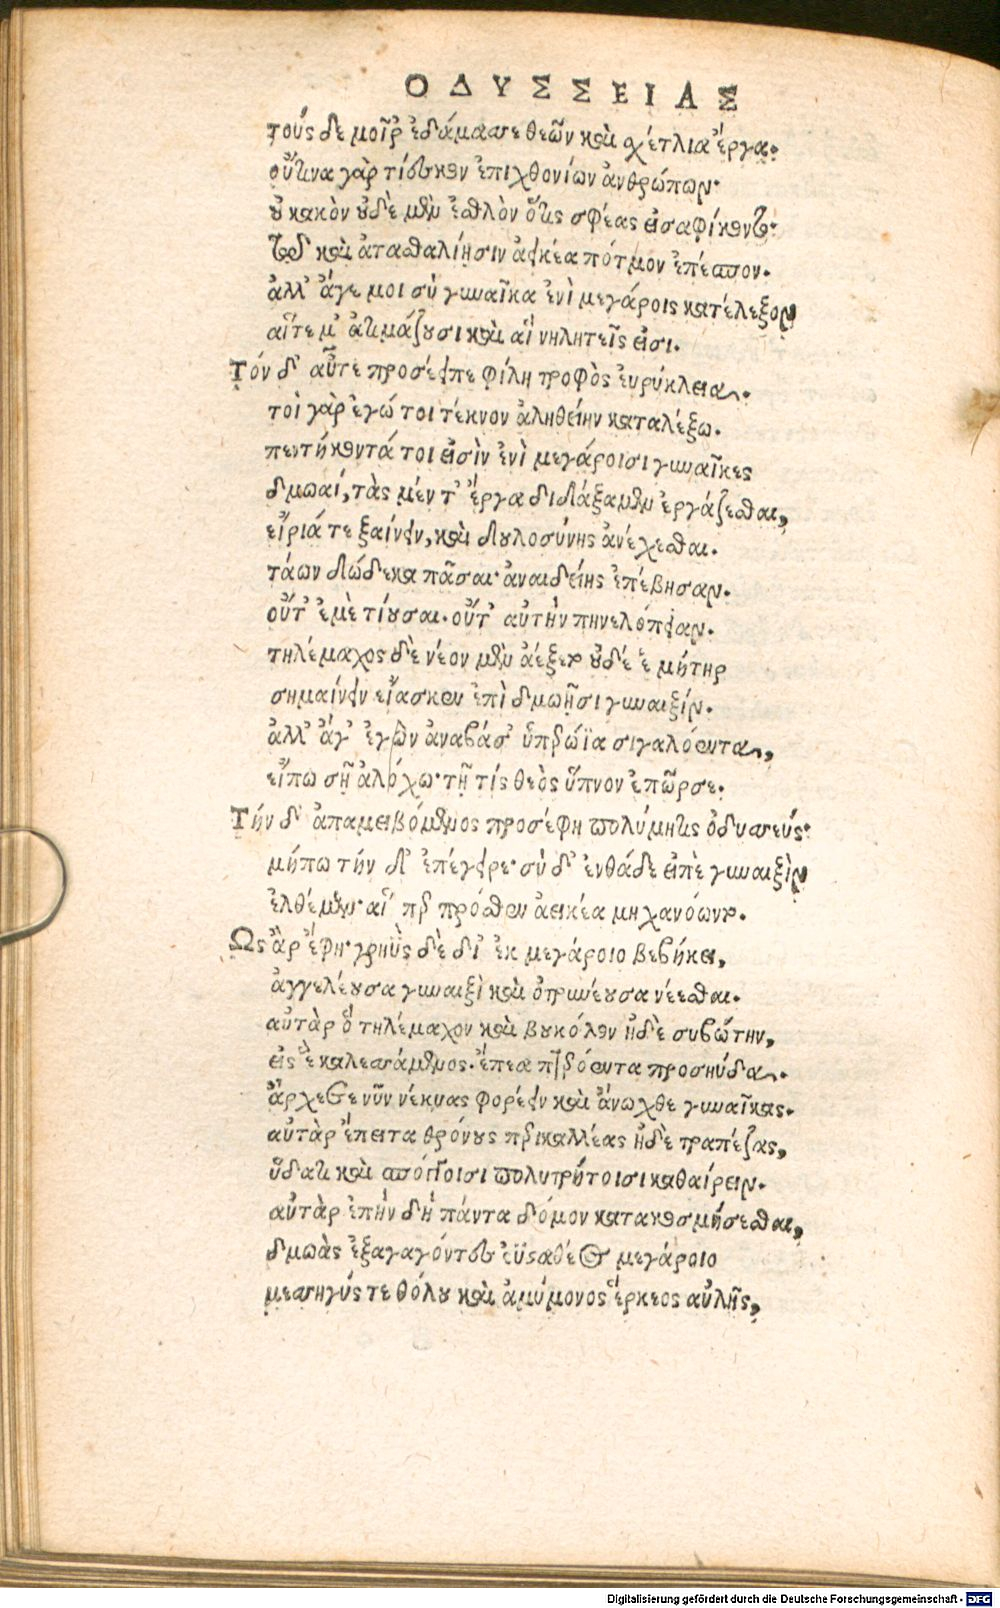 ΟΔΥΣΣΕΙΑΣ
τούς δε μοῖρ ἐδάμασσε θεῶν καὶ σχέτλια ἔργα.
οὔτινα γὰρ τίεσκον ἐπιχθονίων ἀνθρώπων·
οὐ κακὸν οὐδὲ μὲν ἐσθλὸν ὅτις σφέας εἰσαφίκοιτο·
τῷ καὶ ἀτασθαλίῃσιν ἀεικέα πότμον ἐπέσπον.
ἀλλ' ἄγε μοι σὺ γυναῖκα ἐνὶ μεγάροις κατέλεξον
αἵτε μ' ἀτιμάζουσι καὶ αἳ νηλητεῖς εἰσι.
Τόν δ' αὖτε προσέειπε φίλη τροφὸς ἐυρύκλεια.
τοὶ γὰρ ἐγώ τοι τέκνον ἀληθείην καταλέξω.
πεντήκοντά τοι εἰσὶν ἐνὶ μεγάροισι γυναῖκες
δμωαί, τὰς μέν τ' ἔργα διδάξαμεν ἐργάζεσθαι,
εἴριά τε ξαίνειν, καὶ δουλοσύνης ἀνέχεσθαι.
τάων δώδεκα πᾶσαι ἀναιδείης ἐπέβησαν.
οὔτ' ἐμὲ τίουσαι. οὔτ' αὐτὴν πηνελόπειαν.
τηλέμαχος δὲ νέον μὲν ἀέξετο οὐδέ ἑ μήτηρ
σημαίνειν εἴασκεν ἐπὶ δμωῇσι γυναιξίν.
ἀλλ' ἄγ' ἐγὼν ἀναβάσ' ὑπερώϊα σιγαλόεντα,
εἴπω σῇ ἀλόχω· τῇ τίς θεὸς ὕπνον ἐπῶρσε.
Τήν δ' ἀπαμειβόμενος προσέφη πολύμητις ὀδυσσεύς·
μήπω τήν δ' ἐπέγειρε· σύ δ' ἐνθάδε εἰπὲ γυναιξὶν
ἐλθέμεν· αἳ περ πρόσθεν ἀεικέα μηχανόωντο.
Ως ἂρ ἔφη· γρηῢς δὲ δι' ἐκ μεγάροιο βεβήκει,
ἀγγελέουσα γυναιξὶ καὶ ὀτρυνέουσα νέεσθαι.
αὐτὰρ ὃ τηλέμαχον καὶ βουκόλον ἠδὲ συβώτην,
εἰς ἓ καλεσσάμενος. ἔπεα πτερόεντα προσηύδα.
ἄρχεσθε νῦν νέκυας φορέειν καὶ ἄνωχθε γυναῖκας.
αὐτὰρ ἔπειτα θρόνους περικαλλέας ἠδὲ τραπέζας,
ὕδατι καὶ σπόγγοισι πολυτρήτοισι καθαίρειν.
αὐτὰρ ἐπὴν δὴ πάντα δόμον κατακοσμήσεσθαι,
δμωὰς ἐξαγαγόντες ἐϋσαθέος μεγάροιο
μεσσηγύς τε θόλου καὶ ἀμύμονος ἕρκεος αὐλῆς,
Digitalisierung gefördert durch die Deutsche Forschungsgemeinschaft - DFG